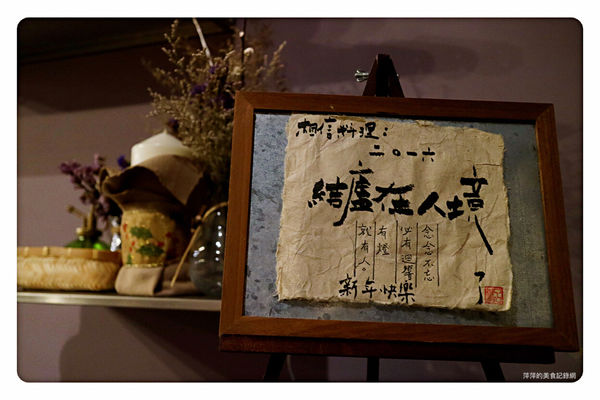 相信料理：
二〇一六
結廬在人境
念念不忘
必有迴響
有燈
就有人。
新年快樂
萍萍的美食記錄網